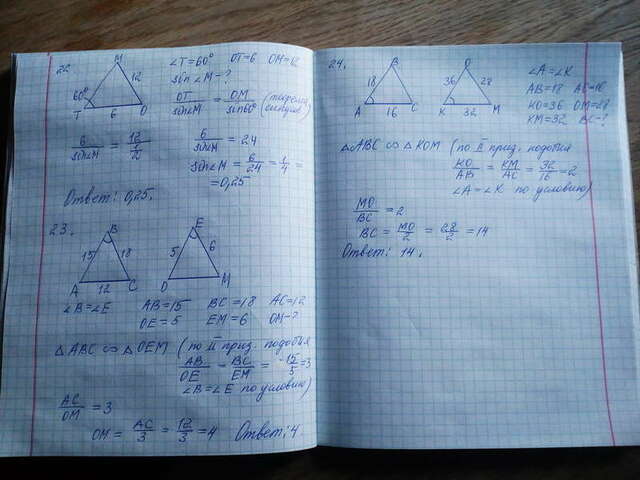 22. ∠T=60° OT=6 OM=12
sin∠M-?
M
60°
12
T 6 O
OT/sin∠M = OM/sin60° (теорема синусов)
6/sin∠M = 12/(1/2)
6/sin∠M = 24
sin∠M = 6/24 = 1/4 =
=0,25
Ответ: 0,25.
23.
B E
15 18 5 6
A 12 C O M
∠B=∠E AB=15 BC=18 AC=12
OE=5 EM=6 OM-?
△ABC ∽ △OEM (по II приз. подобия
AB/OE = BC/EM = 15/5 =3
∠B=∠E по условию)
AC/OM =3
OM = AC/3 = 12/3 =4 Ответ: 4.
24.
B O
18 36 28
A 16 C K 32 M
∠A=∠K
AB=18 AC=16
KO=36 OM=28
KM=32 BC-?
△ABC ∽ △KOM (по II приз. подобия
KO/AB = KM/AC = 32/16 =2
∠A=∠K по условию)
MO/BC =2
BC = MO/2 = 28/2 = 14
Ответ: 14.